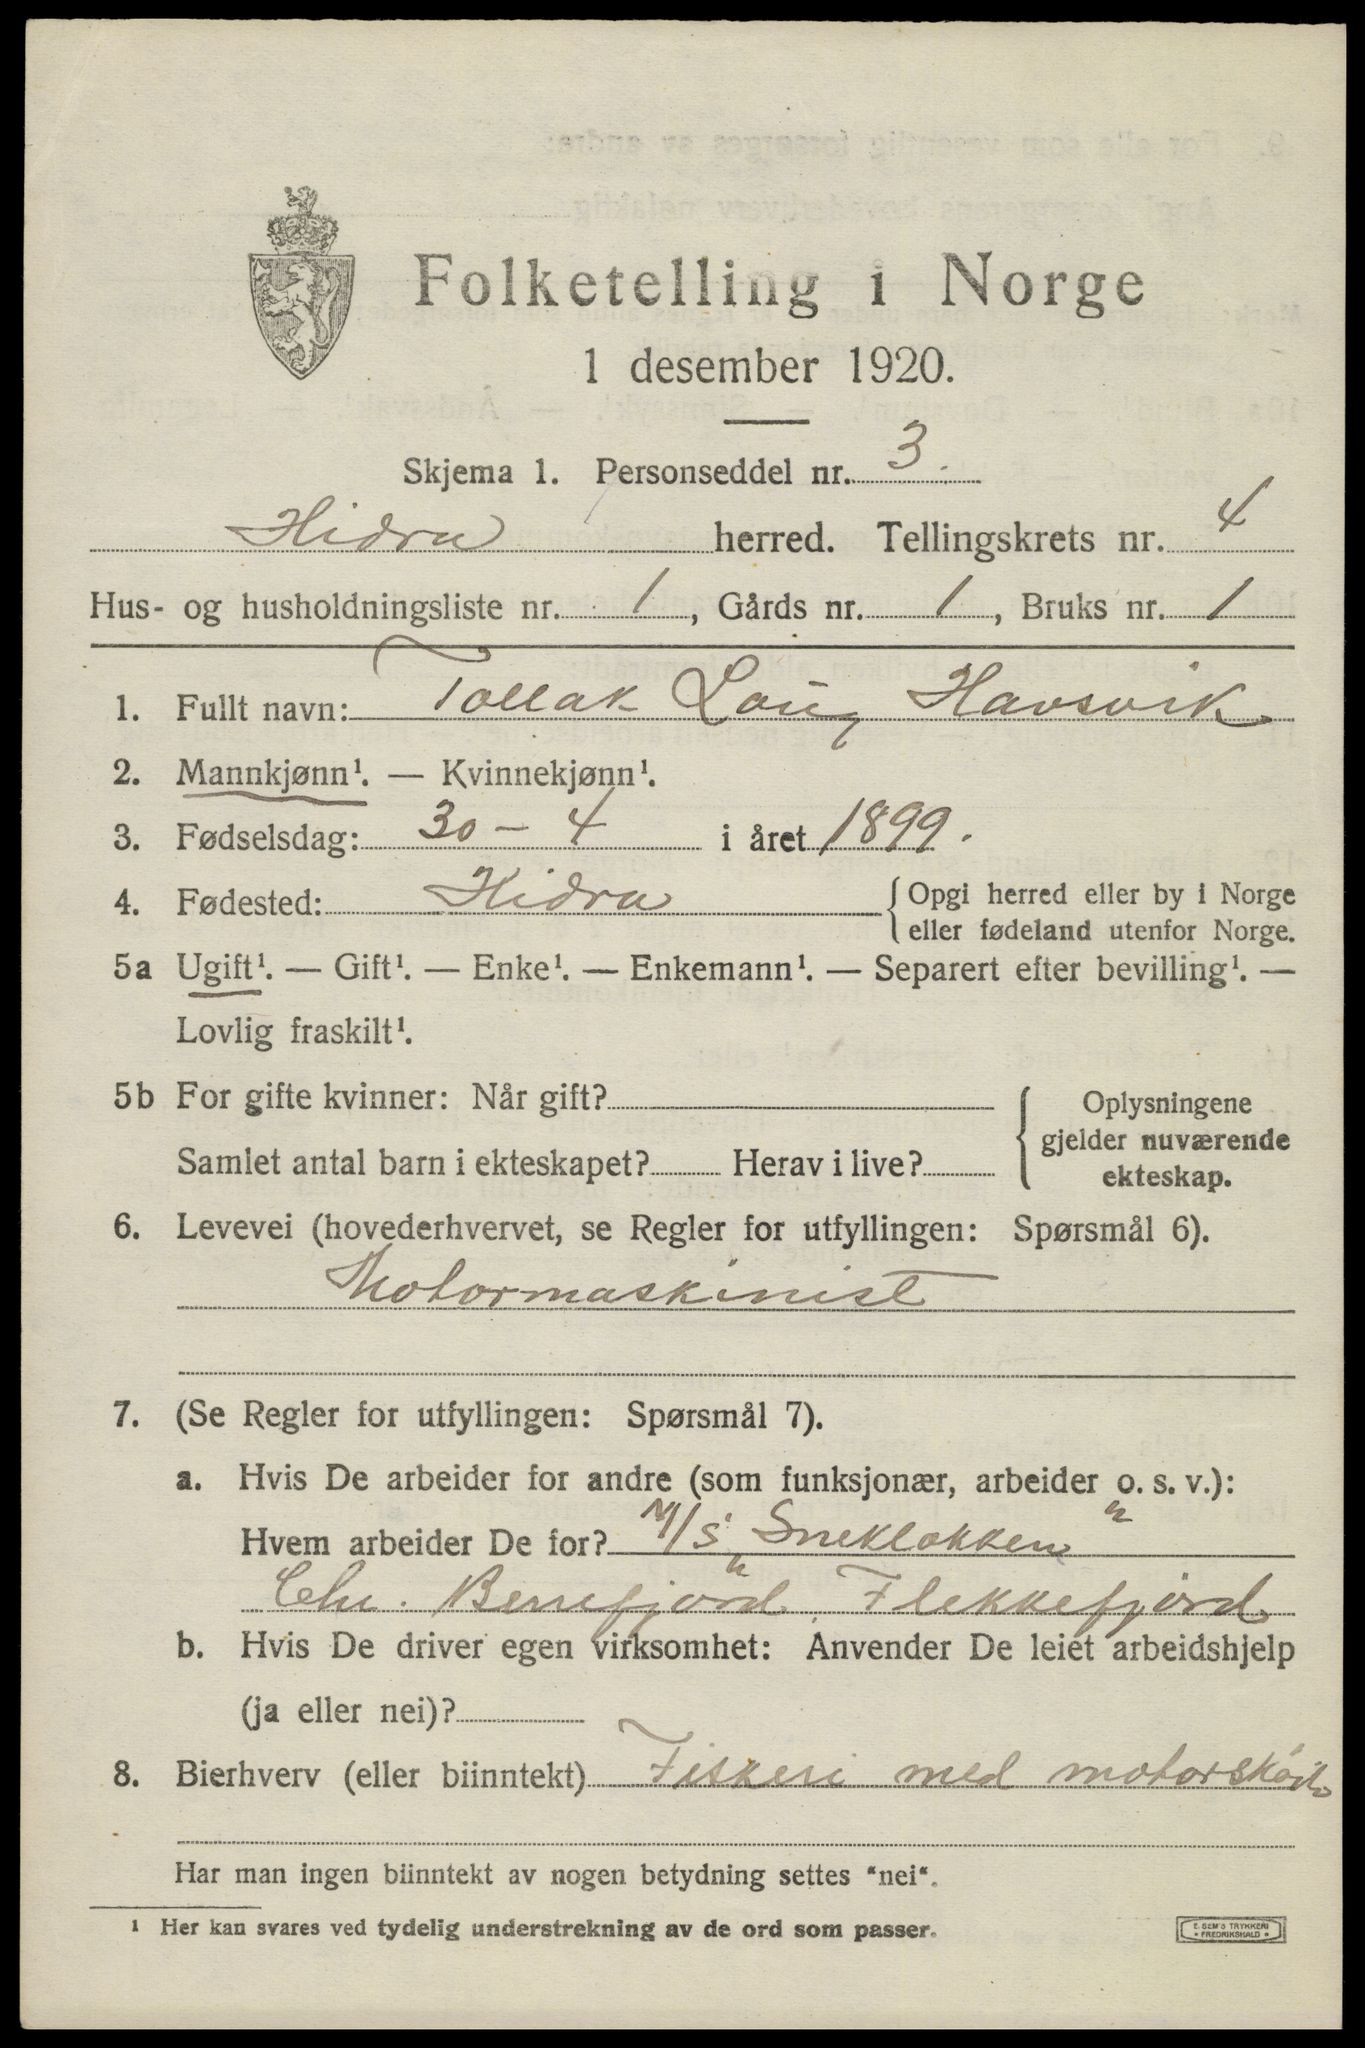 Folketelling i Norge
1 desember 1920.
Skjema 1. Personseddel nr. 3.
Hidra herred. Tellingskrets nr. 4
Hus- og husholdningsliste nr. 1, Gårds nr. 1, Bruks nr. 1
1. Fullt navn: Tollak Havsvik
2. Mannkjønn¹. — Kvinnekjønn¹.
3. Fødselsdag: 30 - 4 i året 1899.
4. Fødested: Hidra { Opgi herred eller by i Norge
eller fødeland utenfor Norge.
5a Ugift¹. — Gift¹. — Enke¹. — Enkemann¹. — Separert efter bevilling¹. —
Lovlig fraskilt¹.
5b For gifte kvinner: Når gift?
Samlet antal barn i ekteskapet? Herav i live?
{ Oplysningene
gjelder nuværende
ekteskap.
6. Levevei (hovederhvervet, se Regler for utfyllingen: Spørsmål 6).
Motormaskinist
7. (Se Regler for utfyllingen: Spørsmål 7).
a. Hvis De arbeider for andre (som funksjonær, arbeider o. s. v.):
Hvem arbeider De for? M/S „Sneklokken"
Chr. Berrefjord, Flekkefjord
b. Hvis De driver egen virksomhet: Anvender De leiet arbeidshjelp
(ja eller nei)?
8. Bierhverv (eller biinntekt) Fiskeri med
Har man ingen biinntekt av nogen betydning settes "nei".
¹ Her kan svares ved tydelig understrekning av de ord som passer.
E. SEM'S TRYKKERI
* FREDRIKSHALD *